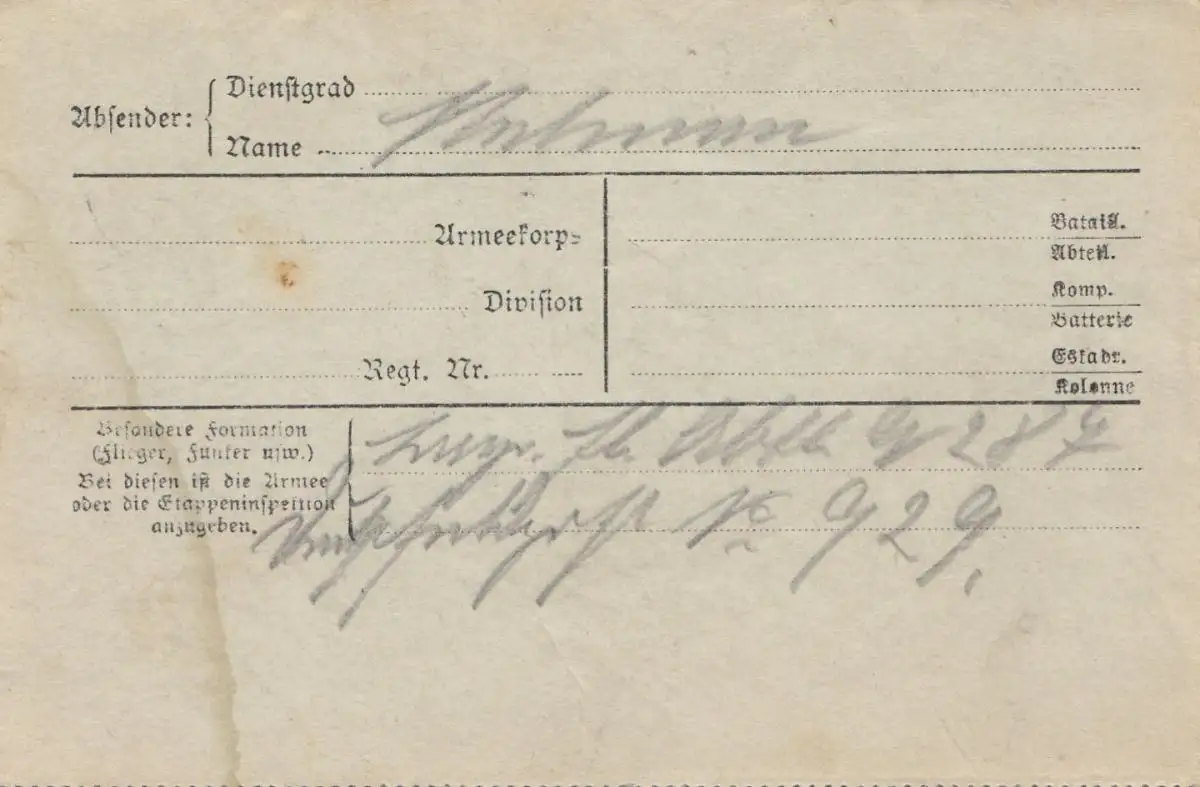 Absender: Dienstgrad
Name
Armeekorps
Division
Regt. Nr.
Bataill.
Abteil.
Komp.
Batterie
Eskadr.
Kolonne
Besondere Formation
(Flieger, Funker usw.)
Bei diesen ist die Armee
oder die Etappeninspektion
anzugeben.
287
929.